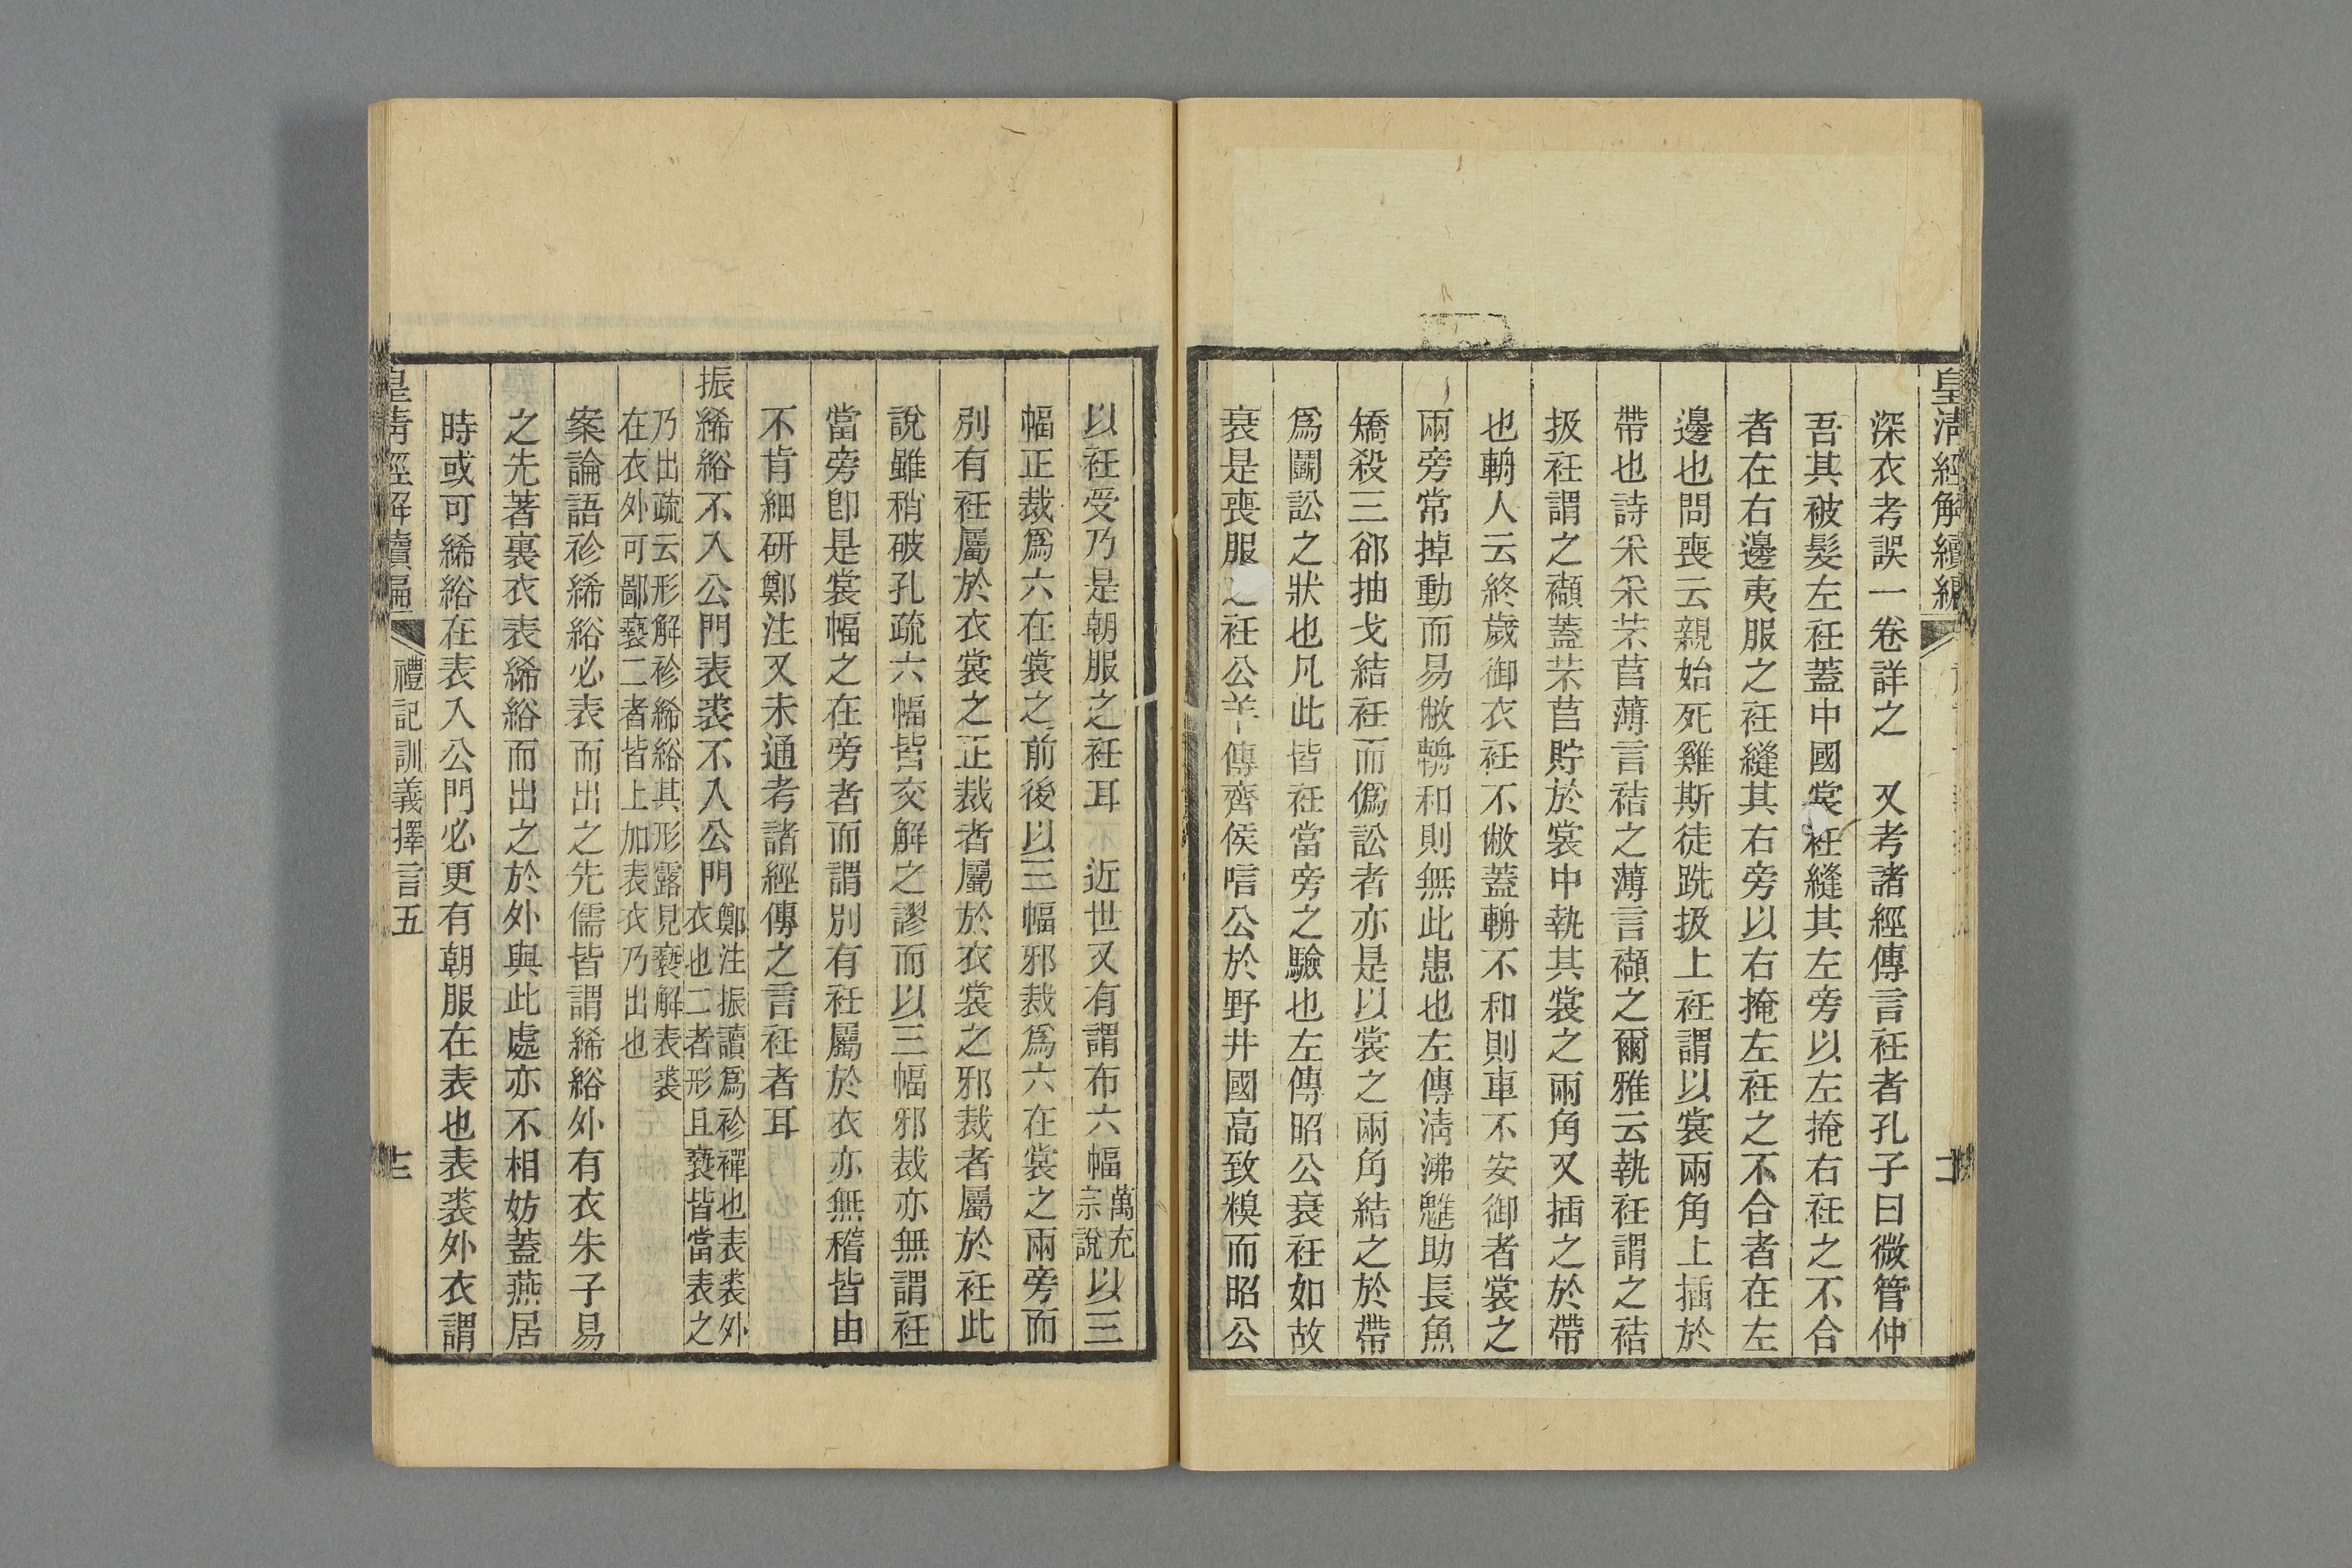 皇清經解續編
深衣考誤一卷詳之　又考諸經傳言衽者孔子曰微管仲
吾其被髮左衽蓋中國裳衽縫其左旁以左掩右衽之不合
者在右邊夷服之衽縫其右旁以右掩左衽之不合者在左
邊也問喪云親始死雞斯徒跣扱上衽謂以裳兩角上插於
帶也詩采采芣苢薄言袺之薄言襭之爾雅云執衽謂之袺
扱衽謂之襭蓋芣苢貯於裳中執其裳之兩角又插之於帶
也輈人云終歲御衣衽不敝蓋輈不和則車不安御者裳之
兩旁常掉動而易敝輈和則無此患也左傳淸沸魋助長魚
矯殺三郤抽戈結衽而僞訟者亦是以裳之兩角結之於帶
爲鬭訟之狀也凡此皆衽當旁之驗也左傳昭公衰衽如故
衰是喪服之衽公羊傳齊侯唁公於野井國高致糗而昭公
以衽受乃是朝服之衽耳　近世又有謂布六幅萬充宗說以三
幅正裁爲六在裳之前後以三幅邪裁爲六在裳之兩旁而
別有衽屬於衣裳之正裁者屬於衣裳之邪裁者屬於衽此
說雖稍破孔疏六幅皆交解之謬而以三幅邪裁亦無謂衽
當旁卽是裳幅之在旁者而謂別有衽屬於衣亦無稽皆由
不肯細研鄭注又未通考諸經傳之言衽者耳
振絺綌不入公門表裘不入公門鄭注振讀爲袗襌也表裘外衣也二者形且褻皆當表之
乃出疏云形解袗絺綌其形露見褻解表裘在衣外可鄙褻二者皆上加表衣乃出也
案論語袗絺綌必表而出之先儒皆謂絺綌外有衣朱子易
之先著裏衣表絺綌而出之於外與此處亦不相妨蓋燕居
時或可絺綌在表入公門必更有朝服在表也表裘外衣謂
皇淸經解續編　禮記訓義擇言五